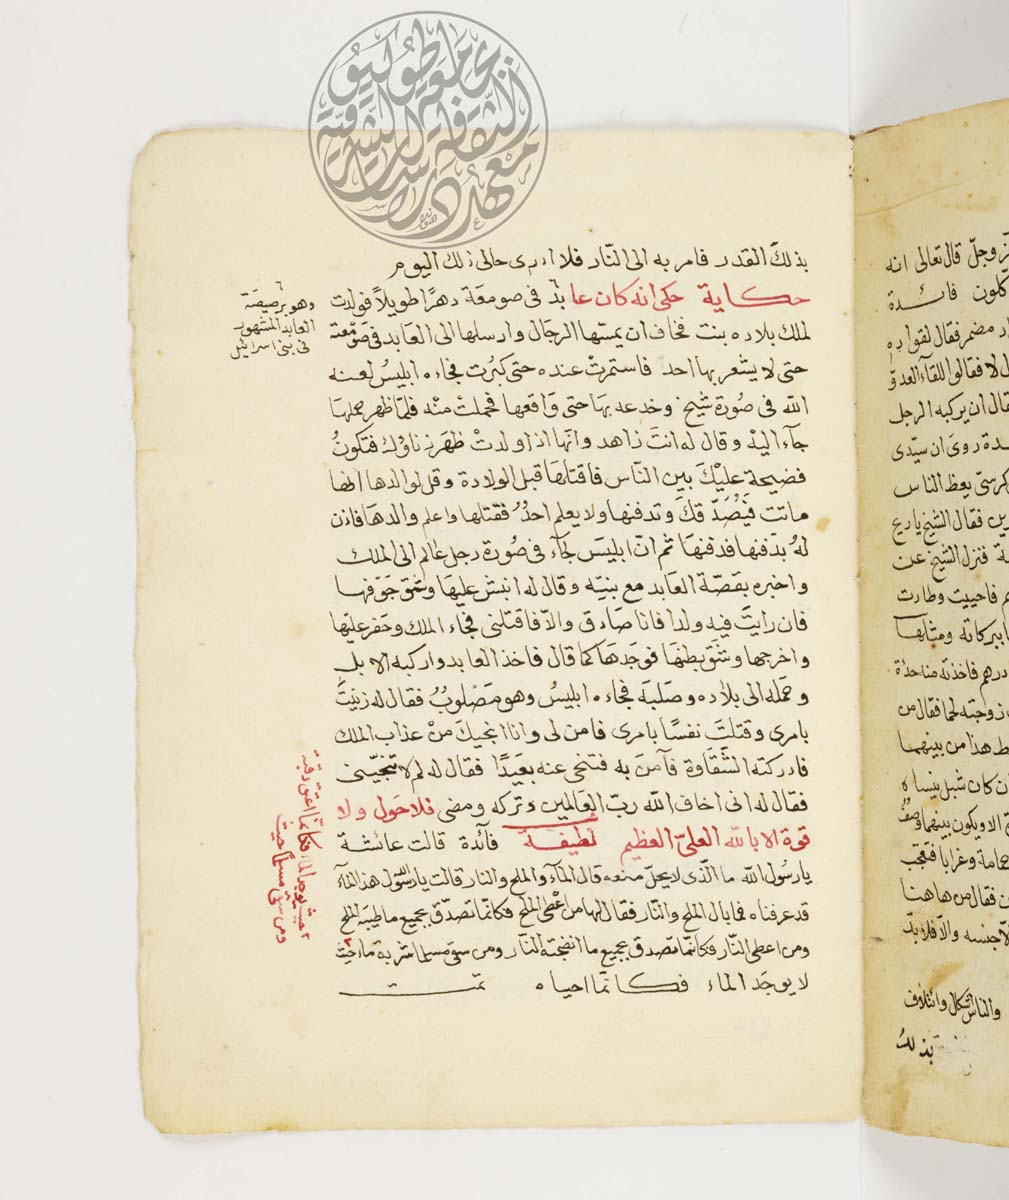 بذلك القدر فامر به الى النّار فلا ادرى حالى ذلك اليوم
حكاية حكى انه كان عابد فى صومعة دهرًا طويلًا فولدت
لملك بلاده بنت فخاف ان يمسّها الرجال وارسلها الى العابد فى صومعته
حتى لا يشعر بها احد فاستمرت عنده حتى كبرت فجاءه ابليس لعنه
الله فى صورة شيخ وخدعه بها حتى واقعها فحملت منه فلمّا ظهر حملها
جآء اليه وقال له انت زاهد وانّها اذا ولدت ظهر زناؤك فتكون
فضيحة عليك بين النّاس فاقتلها قبل الولادة وقل لوالدها انها
ماتت فيصدّقك وتدفنها ولا يعلم احدٌ فقتلها واعلم والدها فاذن
له بدفنها فدفنها ثم انّ ابليس جآء فى صورة رجل عالم الى الملك
واخبره بقصّة العابد مع بنته وقال له انبش عليها وشق جوفها
فان رايت فيه ولدا فانا صادق والّا فاقتلنى فجاء الملك وحفر عليها
واخرجها وشقّ بطنها فوجدها كما قال فاخذ العابد واركبه الابل
وحمله الى بلاده وصلبه فجاءه ابليس وهو مصلوبٌ فقال له زنيت
بامرى وقتلت نفسًا بامرى فامن لى وانا انجيك من عذاب الملك
فادركته الشّقاوة فآمن به فتنحى عنه بعيدًا فقال له لم لا تنجّينى
فقال له انى اخاف الله ربّ العالمين وتركه ومضى فلا حول ولا
قوة الا بالله العلىّ العظيم لطيفة فآئدة قالت عائشة
يا رسول الله ما الّذى لا يحلّ منعه قال المآء والملح والنار قالت يا رسول الله هذا المآء
قد عرفناه فما بال الملح والنّار فقال لها من اعطى الملح فكانّما تصدّق بجميع ما طيبه الملح
ومن اعطى النّار فكانّما تصدق بجميع ما انضجته النّار ومن سقى مسلما شربة ماء حيث
لا يوجد الماء فكانّما احياه تمت
وهو برصيصة
العابد المشهور
فى بنى اسرائيل
حيث يوجد الماء فكانّما اعتق رقبة
ومن سقى مسلما حيث
زّ وجلّ قال تعالى انه
كلون فائدة
مضمر فقال لقواده
ل لا فقالوا للقآء العدوّ
قال ان يركبه الرجل
دة روى ان سيّدى
كرسىّ يعظ الناس
فقال الشيخ يا ريح
ة فنزل الشيخ عن
م فاحييت وطارت
ببركاته ومثلها
درهم فاخذته منه حدأة
زوجته لحما فقال من
ط هذا من بينهما
ن كان شبل نيساه
الا ويكون بينهما وصفٌ
حمامة وغرابا فتعجّب
ن فقال من هاهنا
لّا جنسه والّا فلا بدّ
والناس اشكال وائتلاف
بذلك